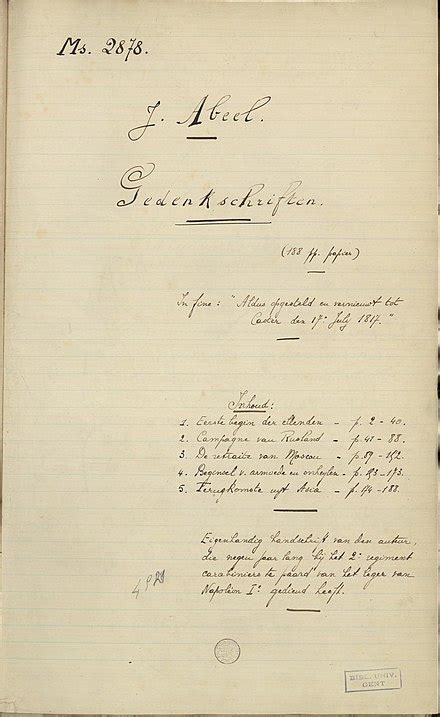 Ms. 2878.
J. Abeel.
Gedenkschriften.
(188 pp. papier)
In fine: "Aldus opgesteld en vernieuwt tot
Caster den 17e July 1817."
Inhoud:
1. Eerste begin der ellenden - p. 2 - 40.
2. Campagne van Rusland - p. 41 - 88.
3. De retraite van Moscou - p. 89 - 142.
4. Beginsel v. armoede en onheylen - p. 143 - 173.
5. Terugkomste uyt Asia - p. 174 - 188.
Eigenhandig handschrift van den auteur,
die negen jaar lang bij het 2e regiment
carabiniers te paard van het leger van
Napoleon Ie gediend heeft.
BIBL. UNIV.
GENT